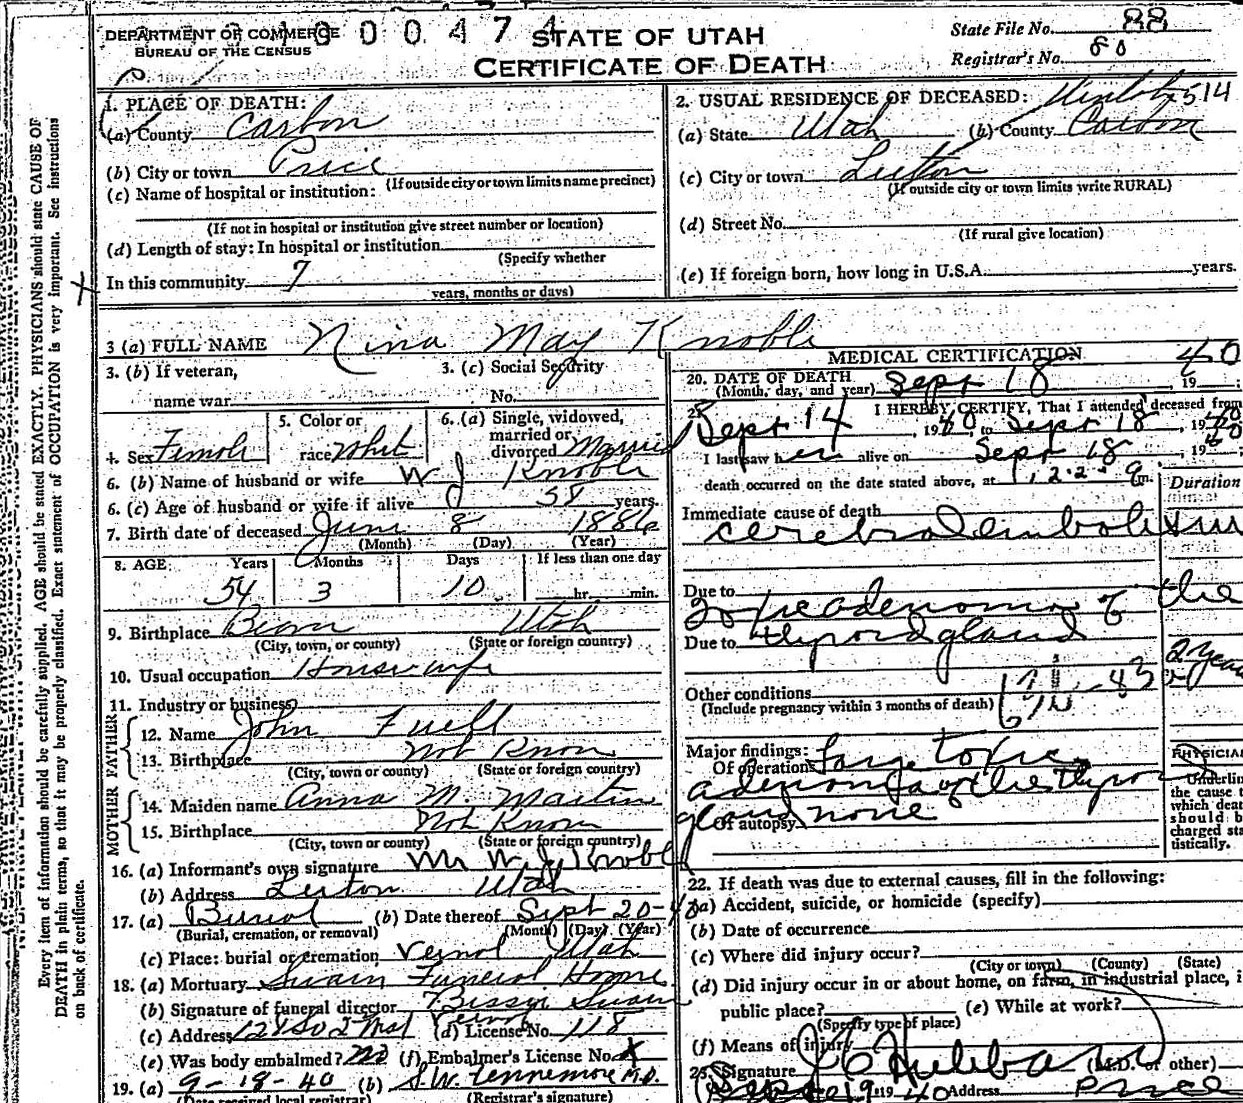 DEPARTMENT OF COMMERCE
BUREAU OF THE CENSUS
0 0 4 7 4
STATE OF UTAH
CERTIFICATE OF DEATH
State File No. 88
Registrar's No. 80
1. PLACE OF DEATH:
(a) County Carbon
(b) City or town Price
(If outside city or town limits name precinct)
(c) Name of hospital or institution:
(If not in hospital or institution give street number or location)
(d) Length of stay: In hospital or institution
(Specify whether
In this community 7
years, months or days)
2. USUAL RESIDENCE OF DECEASED: 514
(a) State Utah (b) County Carbon
(c) City or town
(If outside city or town limits write RURAL)
(d) Street No.
(If rural give location)
(e) If foreign born, how long in U.S.A. years.
3 (a) FULL NAME Nina May Knoble
3. (b) If veteran,
name war
3. (c) Social Security
No.
4. Sex Female
5. Color or
race White
6. (a) Single, widowed,
married or
divorced Married
6. (b) Name of husband or wife W J Knoble
6. (c) Age of husband or wife if alive 58 years.
7. Birth date of deceased June 8 1886
(Month) (Day) (Year)
8. AGE: Years Months Days If less than one day
54 3 10 hr. min.
9. Birthplace Utah
(City, town, or county) (State or foreign country)
10. Usual occupation Housewife
11. Industry or business
FATHER
12. Name John Fuell
13. Birthplace Not Know
(City, town or county) (State or foreign country)
MOTHER
14. Maiden name Anna M. Martin
15. Birthplace Not Know
(City, town or county) (State or foreign country)
16. (a) Informant's own signature Mr W J Knoble
(b) Address Utah
17. (a) Burial (b) Date thereof Sept 20-40
(Burial, cremation, or removal) (Month) (Day) (Year)
(c) Place: burial or cremation Vernal Utah
18. (a) Mortuary Swain Funeral Home
(b) Signature of funeral director Swain
(c) Address Vernal (d) License No. 118
(e) Was body embalmed? No (f) Embalmer's License No. X
19. (a) 9-18-40 (b) S.W. Fennemore M.D.
(Date received local registrar) (Registrar's signature)
MEDICAL CERTIFICATION
20. DATE OF DEATH
(Month, day, and year) Sept 18, 1940
21. I HEREBY CERTIFY, That I attended deceased from
Sept 14, 1940, to Sept 18, 1940
I last saw her alive on Sept 18, 1940;
death occurred on the date stated above, at m.
Duration
Immediate cause of death
cerebral embolism
Due to
adenoma of the
Due to thyroid gland
2 years
Other conditions
(Include pregnancy within 3 months of death)
Major findings:
Of operations large toxic
adenoma of the thyroid
gland
Of autopsy none
PHYSICIAN
Underline
the cause t
which deat
should b
charged sta
tistically.
22. If death was due to external causes, fill in the following:
(a) Accident, suicide, or homicide (specify)
(b) Date of occurrence
(c) Where did injury occur?
(City or town) (County) (State)
(d) Did injury occur in or about home, on farm, in industrial place, i
public place? (e) While at work?
(Specify type of place)
(f) Means of injury
23. Signature J C Hubbard (M.D. or other)
19 1940 Address Price
Every item of information should be carefully supplied. AGE should be stated EXACTLY. PHYSICIANS should state CAUSE OF
DEATH in plain terms, so that it may be properly classified. Exact statement of OCCUPATION is very important. See instructions
on back of certificate.